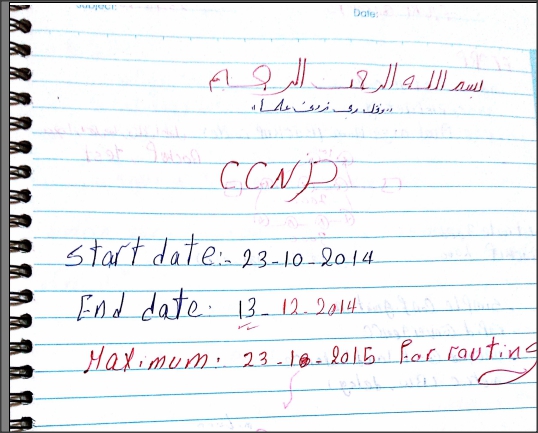 Subject: Date:
بسم الله الرحمن الرحيم
"وقل ربي زدني علما"
CCNP
Start date:- 23-10-2014
End date: 13-12-2014
Maximum: 23-10-2015 For routing